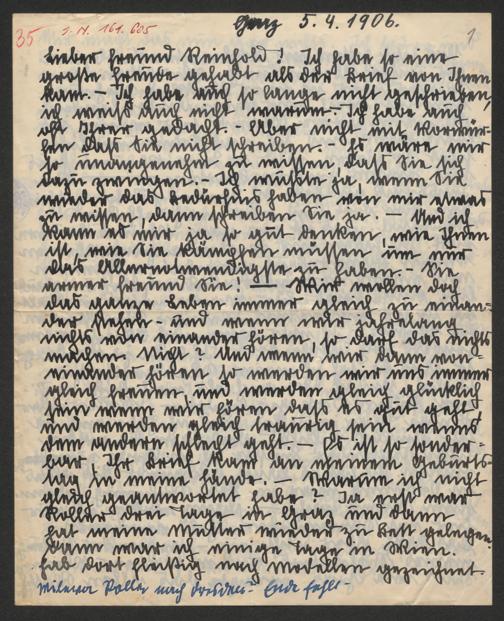 35 I. N. 161.605
Graz 5.4.1906. 1
Lieber Freund Reinhold! Ich habe so eine
große Freude gehabt als der Brief von Ihnen
kam. - Ich habe auch so lange nicht geschrieben,
ich weiß auch nicht warum. - Ich habe auch
oft Ihrer gedacht. - Aber nicht mit Vorwür-
fen dass Sie nicht schreiben. - Es wäre mir
so unangenehm zu wissen, dass Sie sich
dazu zwingen. - Ich wüßte ja, wenn Sie
wieder das Bedürfnis haben von mir etwas
zu wissen, dann schreiben Sie ja. - Und ich
kann es mir ja so gut denken, wie Ihnen
ist, wie Sie kämpfen müssen um nur
das Allernotwendigste zu haben. - Sie
armer Freund Sie! - Wir wollen doch
das ganze Leben immer gleich zu einan-
der stehen - und wenn wir jahrelang
nichts von einander hören, so darf das nichts
machen. Nicht? Und wenn wir dann von-
einander hören so werden wir uns immer
gleich freuen, und werden gleich glücklich
sein wenn wir hören dass es gut geht
und werden gleich traurig sein wenns
dem andern schlecht geht. - Es ist so sonder-
bar, Ihr Brief kam an meinem Geburts-
tag in meine Hände. - Warum ich nicht
gleich geantwortet habe? Ja erst war
Koller drei Tage in Graz und dann
hat meine Mutter wieder zu Bett gelegen
dann war ich einige Tage in Wien.
hab dort fleißig nach Modellen gezeichnet
Mileva Roller nach Dresden - Ende fehlt -